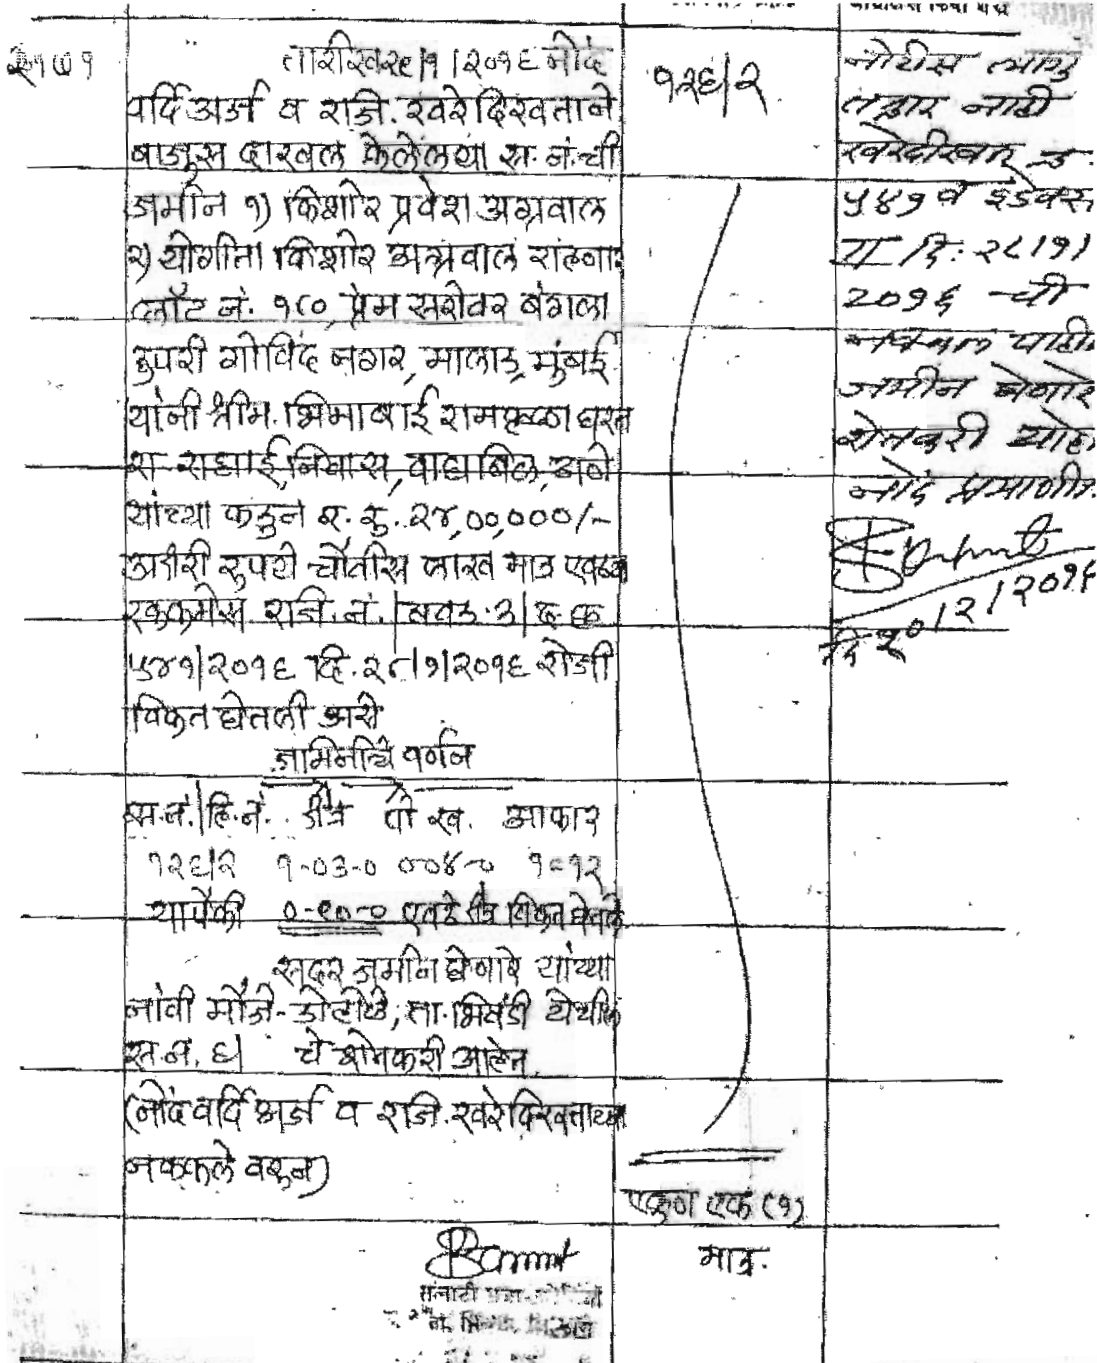 तारीख २९/१/२०१६ नोंद
वर्दि अर्ज व राजि. खरेदिखताने
बाजुस दाखल केलेलया स. नं. ची
जमीन १) किशोर प्रवेश अग्रवाल
२) योगीता किशोर अग्रवाल राहणार
प्लॉट नं. १८०, प्रेम सरोवर बंगला
गोविंद नगर, मालाड, मुंबई
यांनी श्रीम. भिमाबाई रामकृष्ण घरत
रा. राधाई निवास, वाघबिल, ठाणे
यांच्या कडुन र. रु. २४,००,०००/-
अक्षरी रुपये चौतीस लाख मात्र एवढ्या
रक्कमेस राजि. नं. टनन. ३/द क्र
५४१/२०१६ दि. २८/१/२०१६ रोजी
विकत घेतली असे
जामिनीचे वर्णन
स.नं./हि.नं. क्षेत्र पो ख. आकार
१२६/२ १-०३-० ०-०४-० १=१२
यापैकी ०-१०-० एवढे क्षेत्र विकत घेतले
सदर जमीन घेणारे यांच्या
नांवी मौजे- ता. भिवंडी येथील
स.नं. ६/ चे शेतकरी आहेत.
(नोंद वर्दि अर्ज व राजि. खरेदिखताच्या
नक्कले वरुन)
१२६/२
एकुण एक (१)
मात्र.
नोटीस लागु
तक्रार नाही
खरेदीखत क्र.
५४१ व इंडेक्स
II दि: २८/१/
२०१६ ची
नक्कल पाहिली
जमीन घेणारे
शेतकरी आहे
नोंद प्रमाणीत
दि १०/२/२०१६